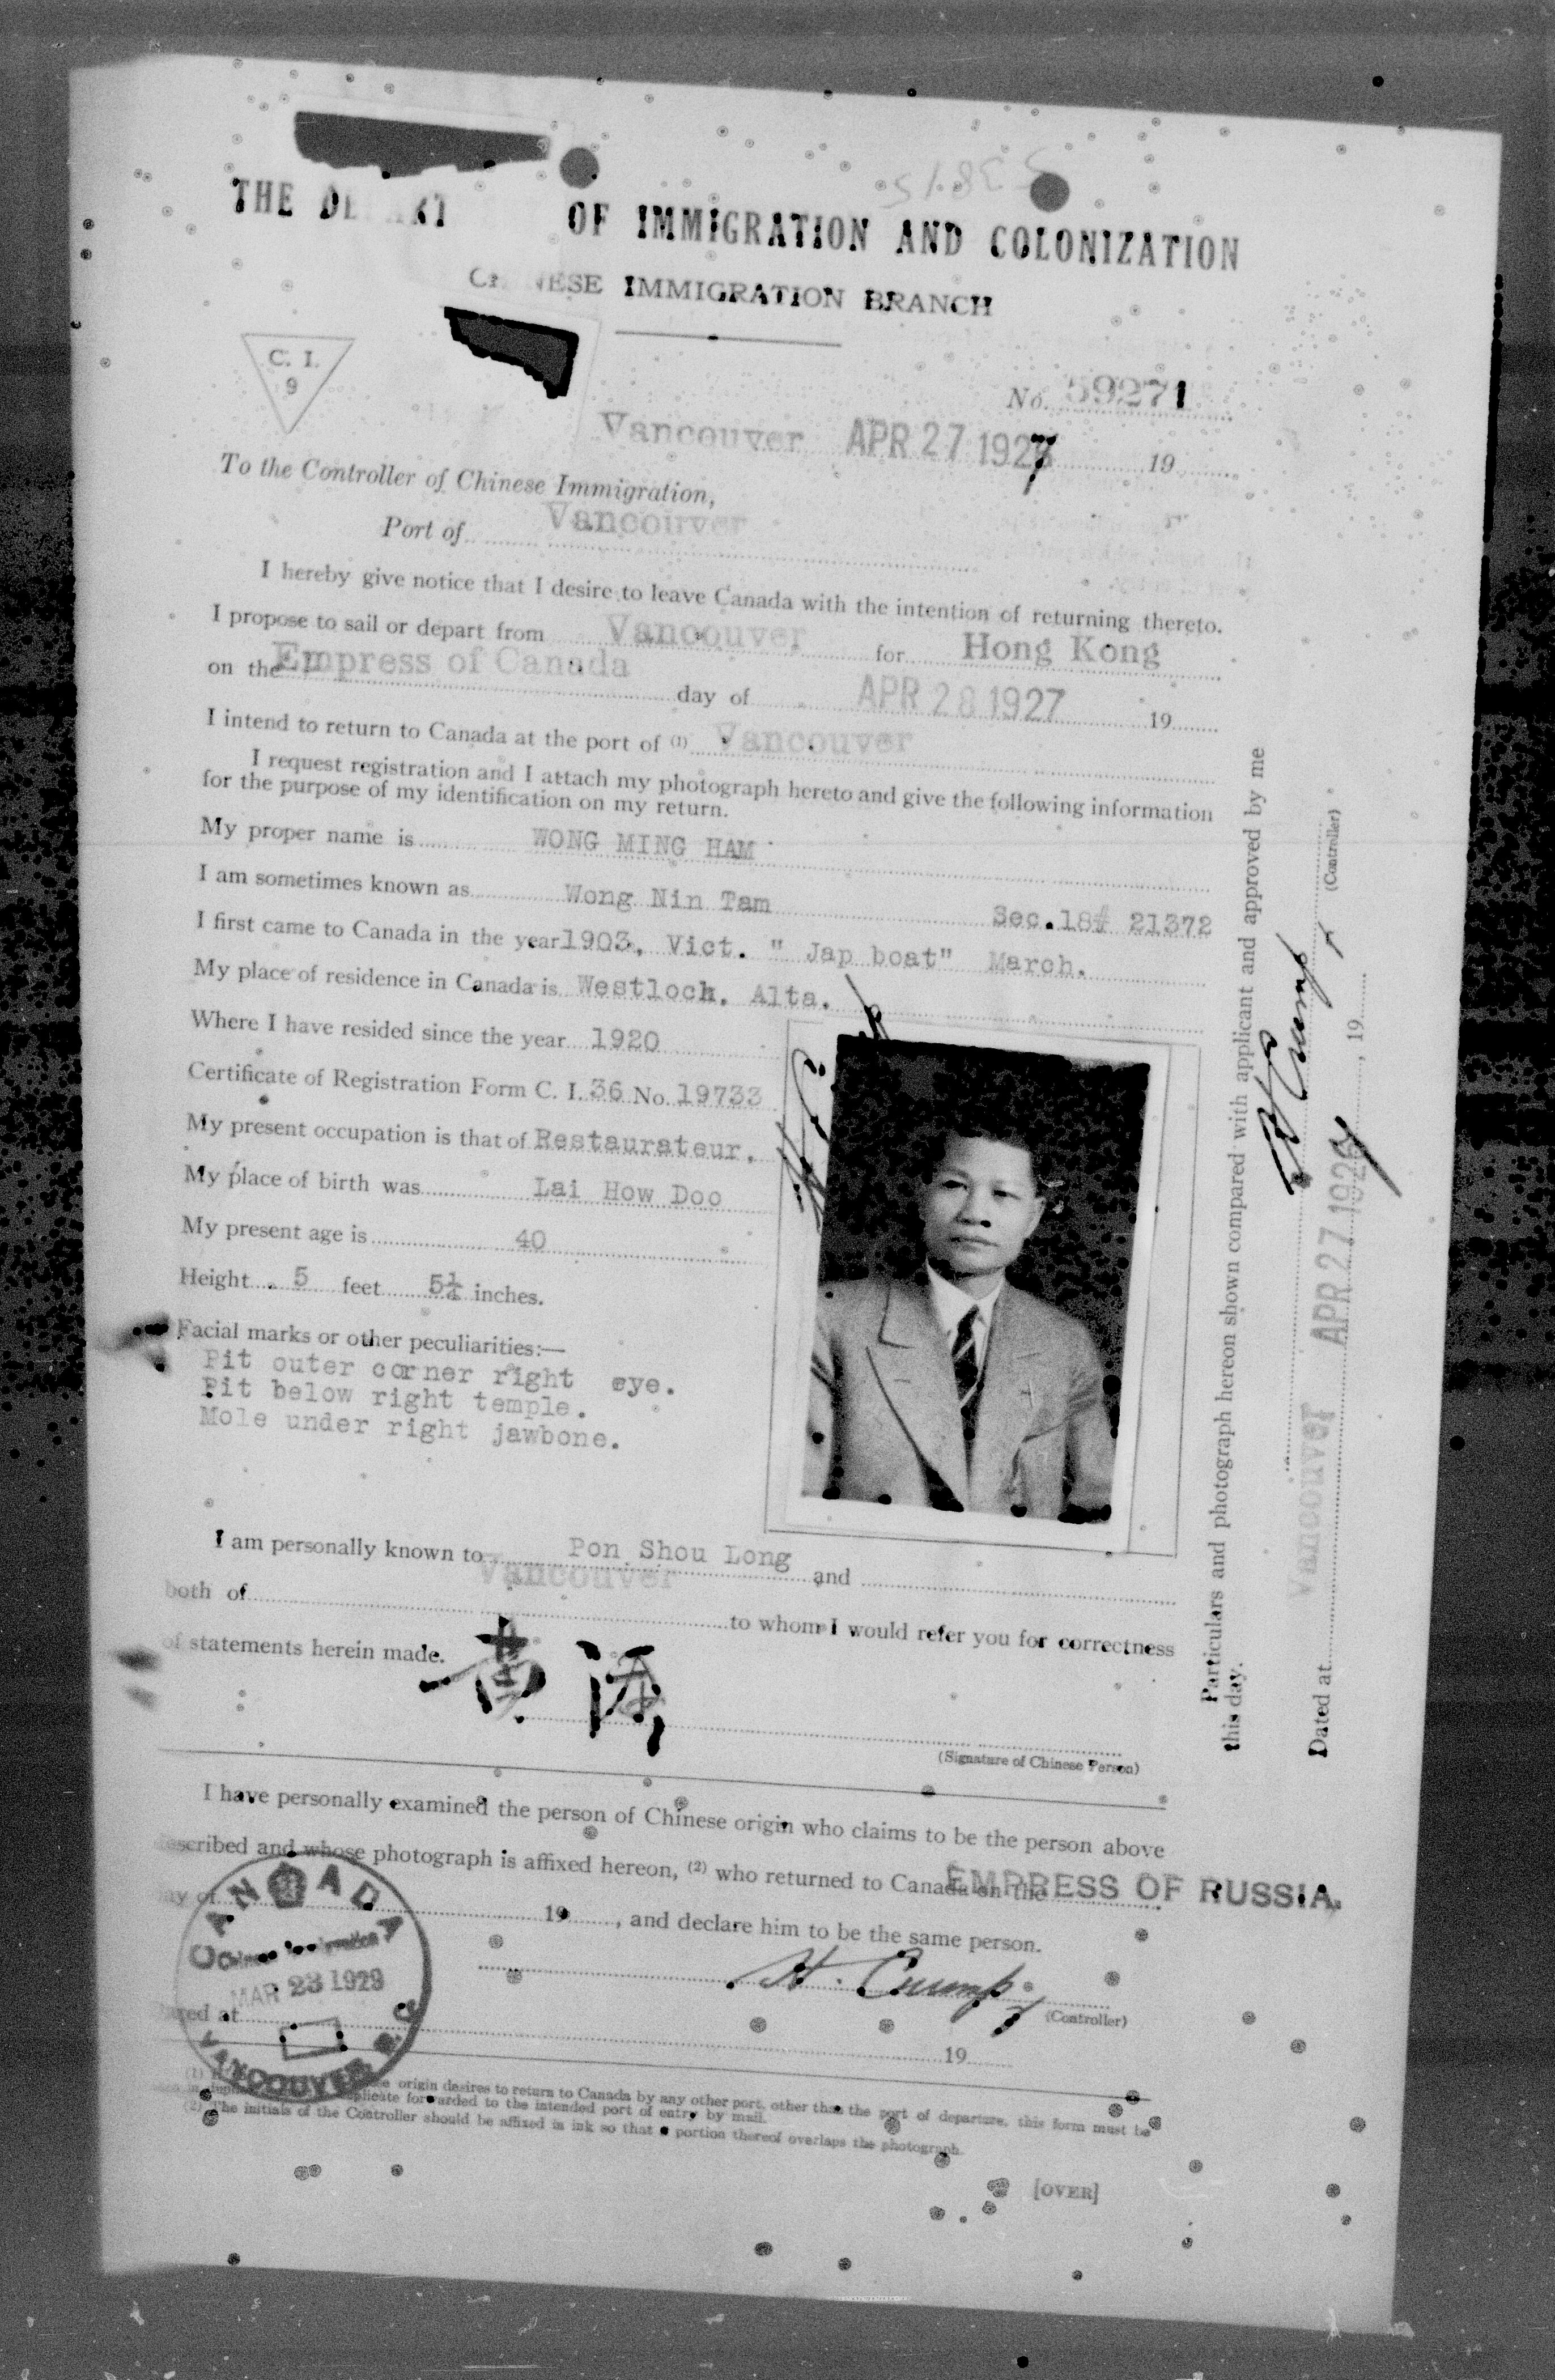 THE OF IMMIGRATION AND COLONIZATION
CHINESE IMMIGRATION BRANCH
C. I.
9
No. 59271
Vancouver APR 27 1927 19
To the Controller of Chinese Immigration,
Port of Vancouver
I hereby give notice that I desire to leave Canada with the intention of returning thereto.
I propose to sail or depart from Vancouver for Hong Kong
on the Empress of Canada day of APR 28 1927 19
I intend to return to Canada at the port of (1) Vancouver
I request registration and I attach my photograph hereto and give the following information
for the purpose of my identification on my return.
My proper name is WONG MING HAM
I am sometimes known as Wong Nin Tam Sec.18# 21372
I first came to Canada in the year 1903, Vict. " Jap boat" March.
My place of residence in Canada is Westlock, Alta.
Where I have resided since the year 1920
Certificate of Registration Form C. I. 36 No. 19733
My present occupation is that of Restaurateur.
My place of birth was Lai How Doo
My present age is 40
Height 5 feet 5¼ inches.
Facial marks or other peculiarities:—
Pit outer corner right eye.
Pit below right temple.
Mole under right jawbone.
I am personally known to Pon Shou Long and
both of Vancouver to whom I would refer you for correctness
of statements herein made.
黃
(Signature of Chinese Person)
I have personally examined the person of Chinese origin who claims to be the person above
described and whose photograph is affixed hereon, (2) who returned to Canada on the EMPRESS OF RUSSIA.
day of 19 , and declare him to be the same person.
H. Crump
(Controller)
Dated at 19
CANADA
Chinese Immigration
MAR 23 1929
VANCOUVER B.C.
origin desires to return to Canada by any other port, other than the port of departure, this form must be
forwarded to the intended port of entry by mail.
(2) The initials of the Controller should be affixed in ink so that a portion thereof overlaps the photograph.
[OVER]
Particulars and photograph hereon shown compared with applicant and approved by me
this day.
H Crump
(Controller)
Dated at Vancouver APR 27 1927, 19